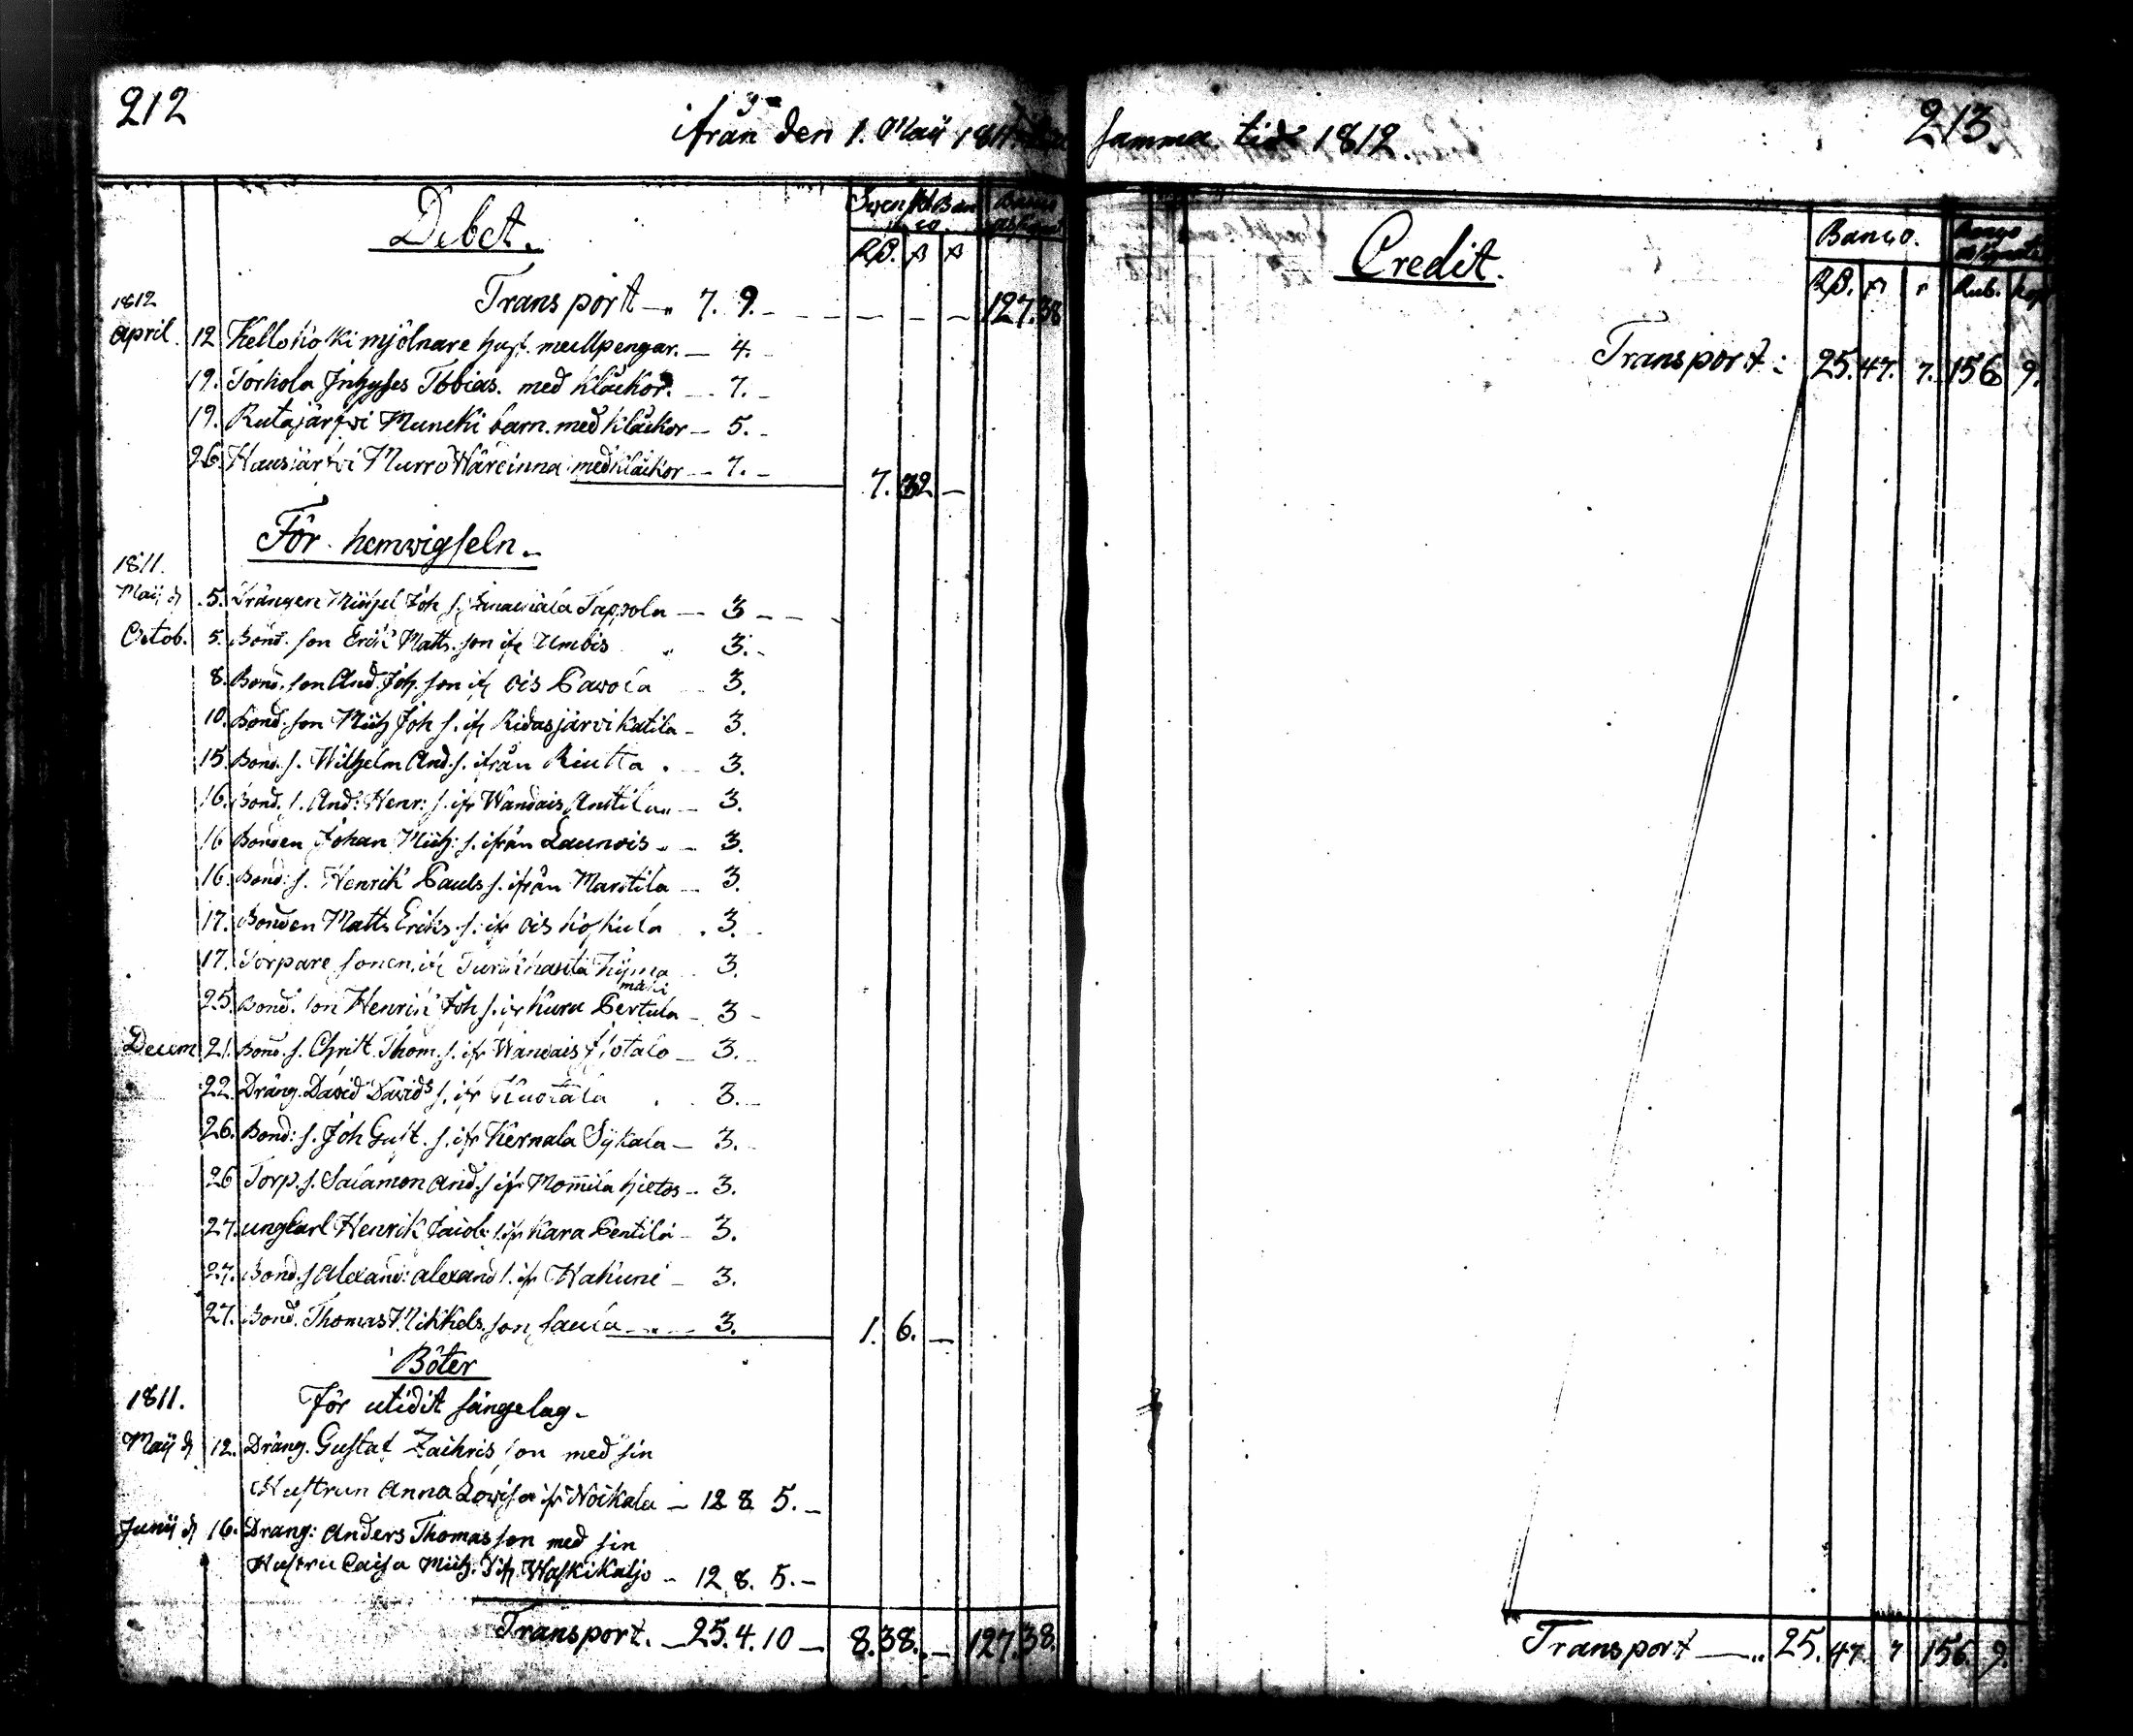 212
ifrån den 1. Maij 1811. till
Debet.
Svenskt Banco. Banco
RD. ß
Transport — 7. 9. — — — — 127. 38
1812
April. 12 Kellokoski mjölnare hust. med llpengar. — 4. —
19. Torhola Inhyses Tobias. med klåckor. — 7. —
19. Rutajärfvi Muncki barn. med klåckor — 5. —
26. Hausjärfvi Murro Wärdinna med klåckor — 7. — 7. 32 —
För hemwigseln.
1811.
Maij d 5. Drängen Joh s. Tappola — 3 — —
Octob. 5. Bond. son Erik Matts. son ifr Umbis 3. —
8. Bond. son And. Joh. son ifr Ois Pawola — 3.
10. Bond. son Mich Joh s. ifr Ridasjärvi Katila — 3.
15. Bond. s. Wilhelm And. s. ifrån Riutta . — 3.
16. Bond. s. And: Henr: s. ifr Wandais Anttila — 3.
16 Bonden Johan Mich: s. ifrån Launois — 3.
16. Bond: s. Henrik Pauls s. ifrån Marttila — 3.
17. Bonden Matts Eriks. s. ifr Ois Koskula . 3. —
17. Torpare sonen ifr 3.
mäki
25. Bond. son Henrik Joh s. ifr Kara Pertula — 3 —
Decem 21. Bond. s. Christ. Thom. s. ifr Wandais — 3. —
22. Dräng. David Davids s. ifr . 3. —
26. Bond: s. Joh Gust. s. ifr Kernala Sykäla — 3. —
26 Torp. s. Salamon And. s ifr Mommila — 3.
27. ungkarl Henrik Jacob: s. ifr Kara Pentilä — 3.
27. Bond. s Alexand: Alexand s. ifr — 3.
27. Bond. Thomas Mikkels. son — 3. 1. 6. —
Böter
1811. För otidit sängelag.
Maij d 12. Dräng. Gustaf Zachris son med sin
Hustrun Anna Lovisa ifr Noikala — 12 8 5. —
Junij d 16. Dräng: Anders Thomasson med sin
Hustru Caisa Mich: D ifr Waskikaljo — 12. 8. 5. —
Transport. — 25. 4. 10 — 8. 38. — 127. 38.
samma tid 1812.
213.
Credit.
Banco. Banco
RD. ß r Rub. Kop
Transport: 25. 47. 7. 156 9.
Transport — 25. 47. 7 156. 9.